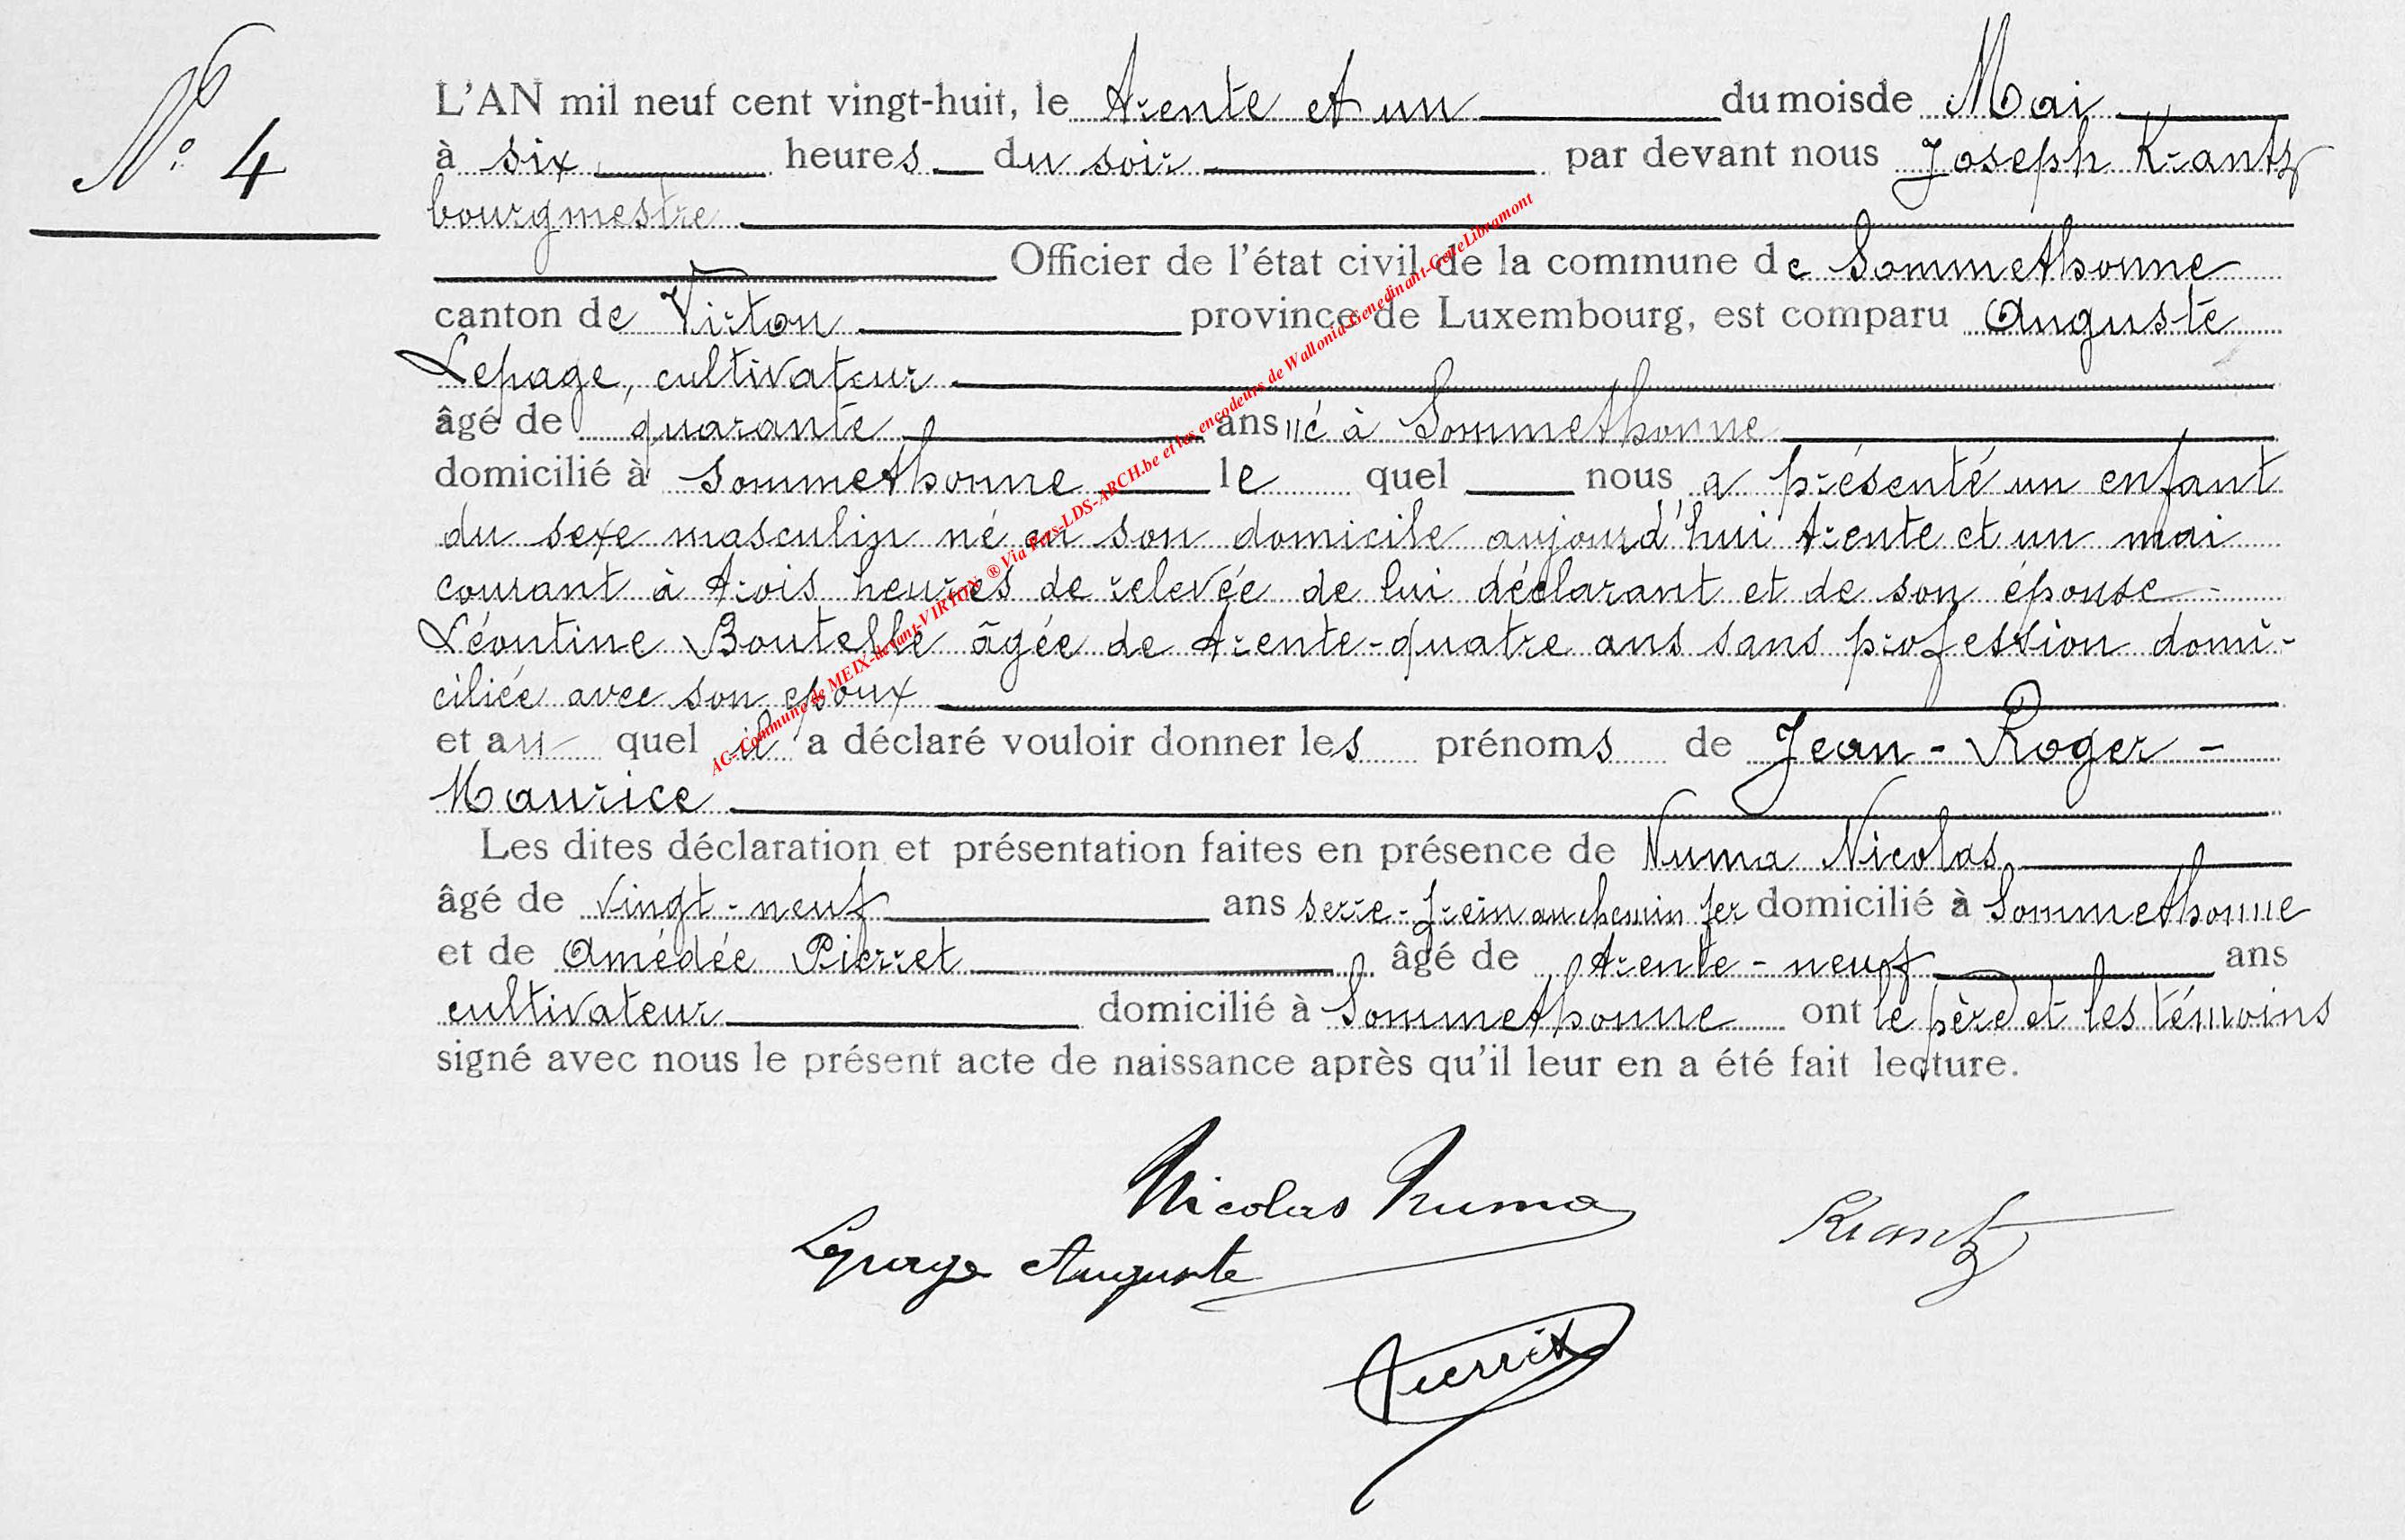 Nº 4
L'AN mil neuf cent vingt-huit, le trente et un du mois de Mai
à six heures du soir par devant nous Joseph Krantz
bourgmestre
Officier de l'état civil de la commune de Sommethonne
canton de Virton province de Luxembourg, est comparu Auguste
Lepage, cultivateur
âgé de quarante ans né à Sommethonne
domicilié à Sommethonne le quel nous a présenté un enfant
du sexe masculin né en son domicile aujourd'hui trente et un mai
courant à trois heures de relevée de lui déclarant et de son épouse
Léontine Boutelle âgée de trente-quatre ans sans profession domi-
ciliée avec son époux
et au quel il a déclaré vouloir donner les prénoms de Jean - Roger -
Maurice
Les dites déclaration et présentation faites en présence de Numa Nicolas
âgé de vingt-neuf ans serre-frein au chemin fer domicilié à Sommethonne
et de Amédée Pierret âgé de trente-neuf ans
cultivateur domicilié à Sommethonne ont le père et les témoins
signé avec nous le présent acte de naissance après qu'il leur en a été fait lecture.
Nicolas Numa
Lepage Auguste
Krantz
Pierret
AC-Commune de MEIX-devant-VIRTON ® Via Pers-LDS-ARCH.be et les encodeurs de Wallonia-Genedinant-GeneLibramont